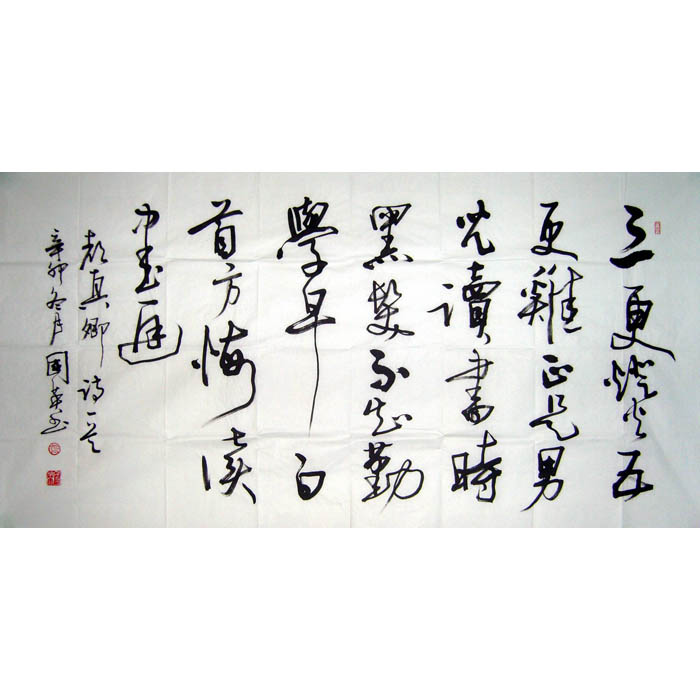 三更燈火五
更雞正是男
兒讀書時
黑髮不知勤
學早白
首方悔讀
書遲
顏真卿詩一首
辛卯冬月國英書